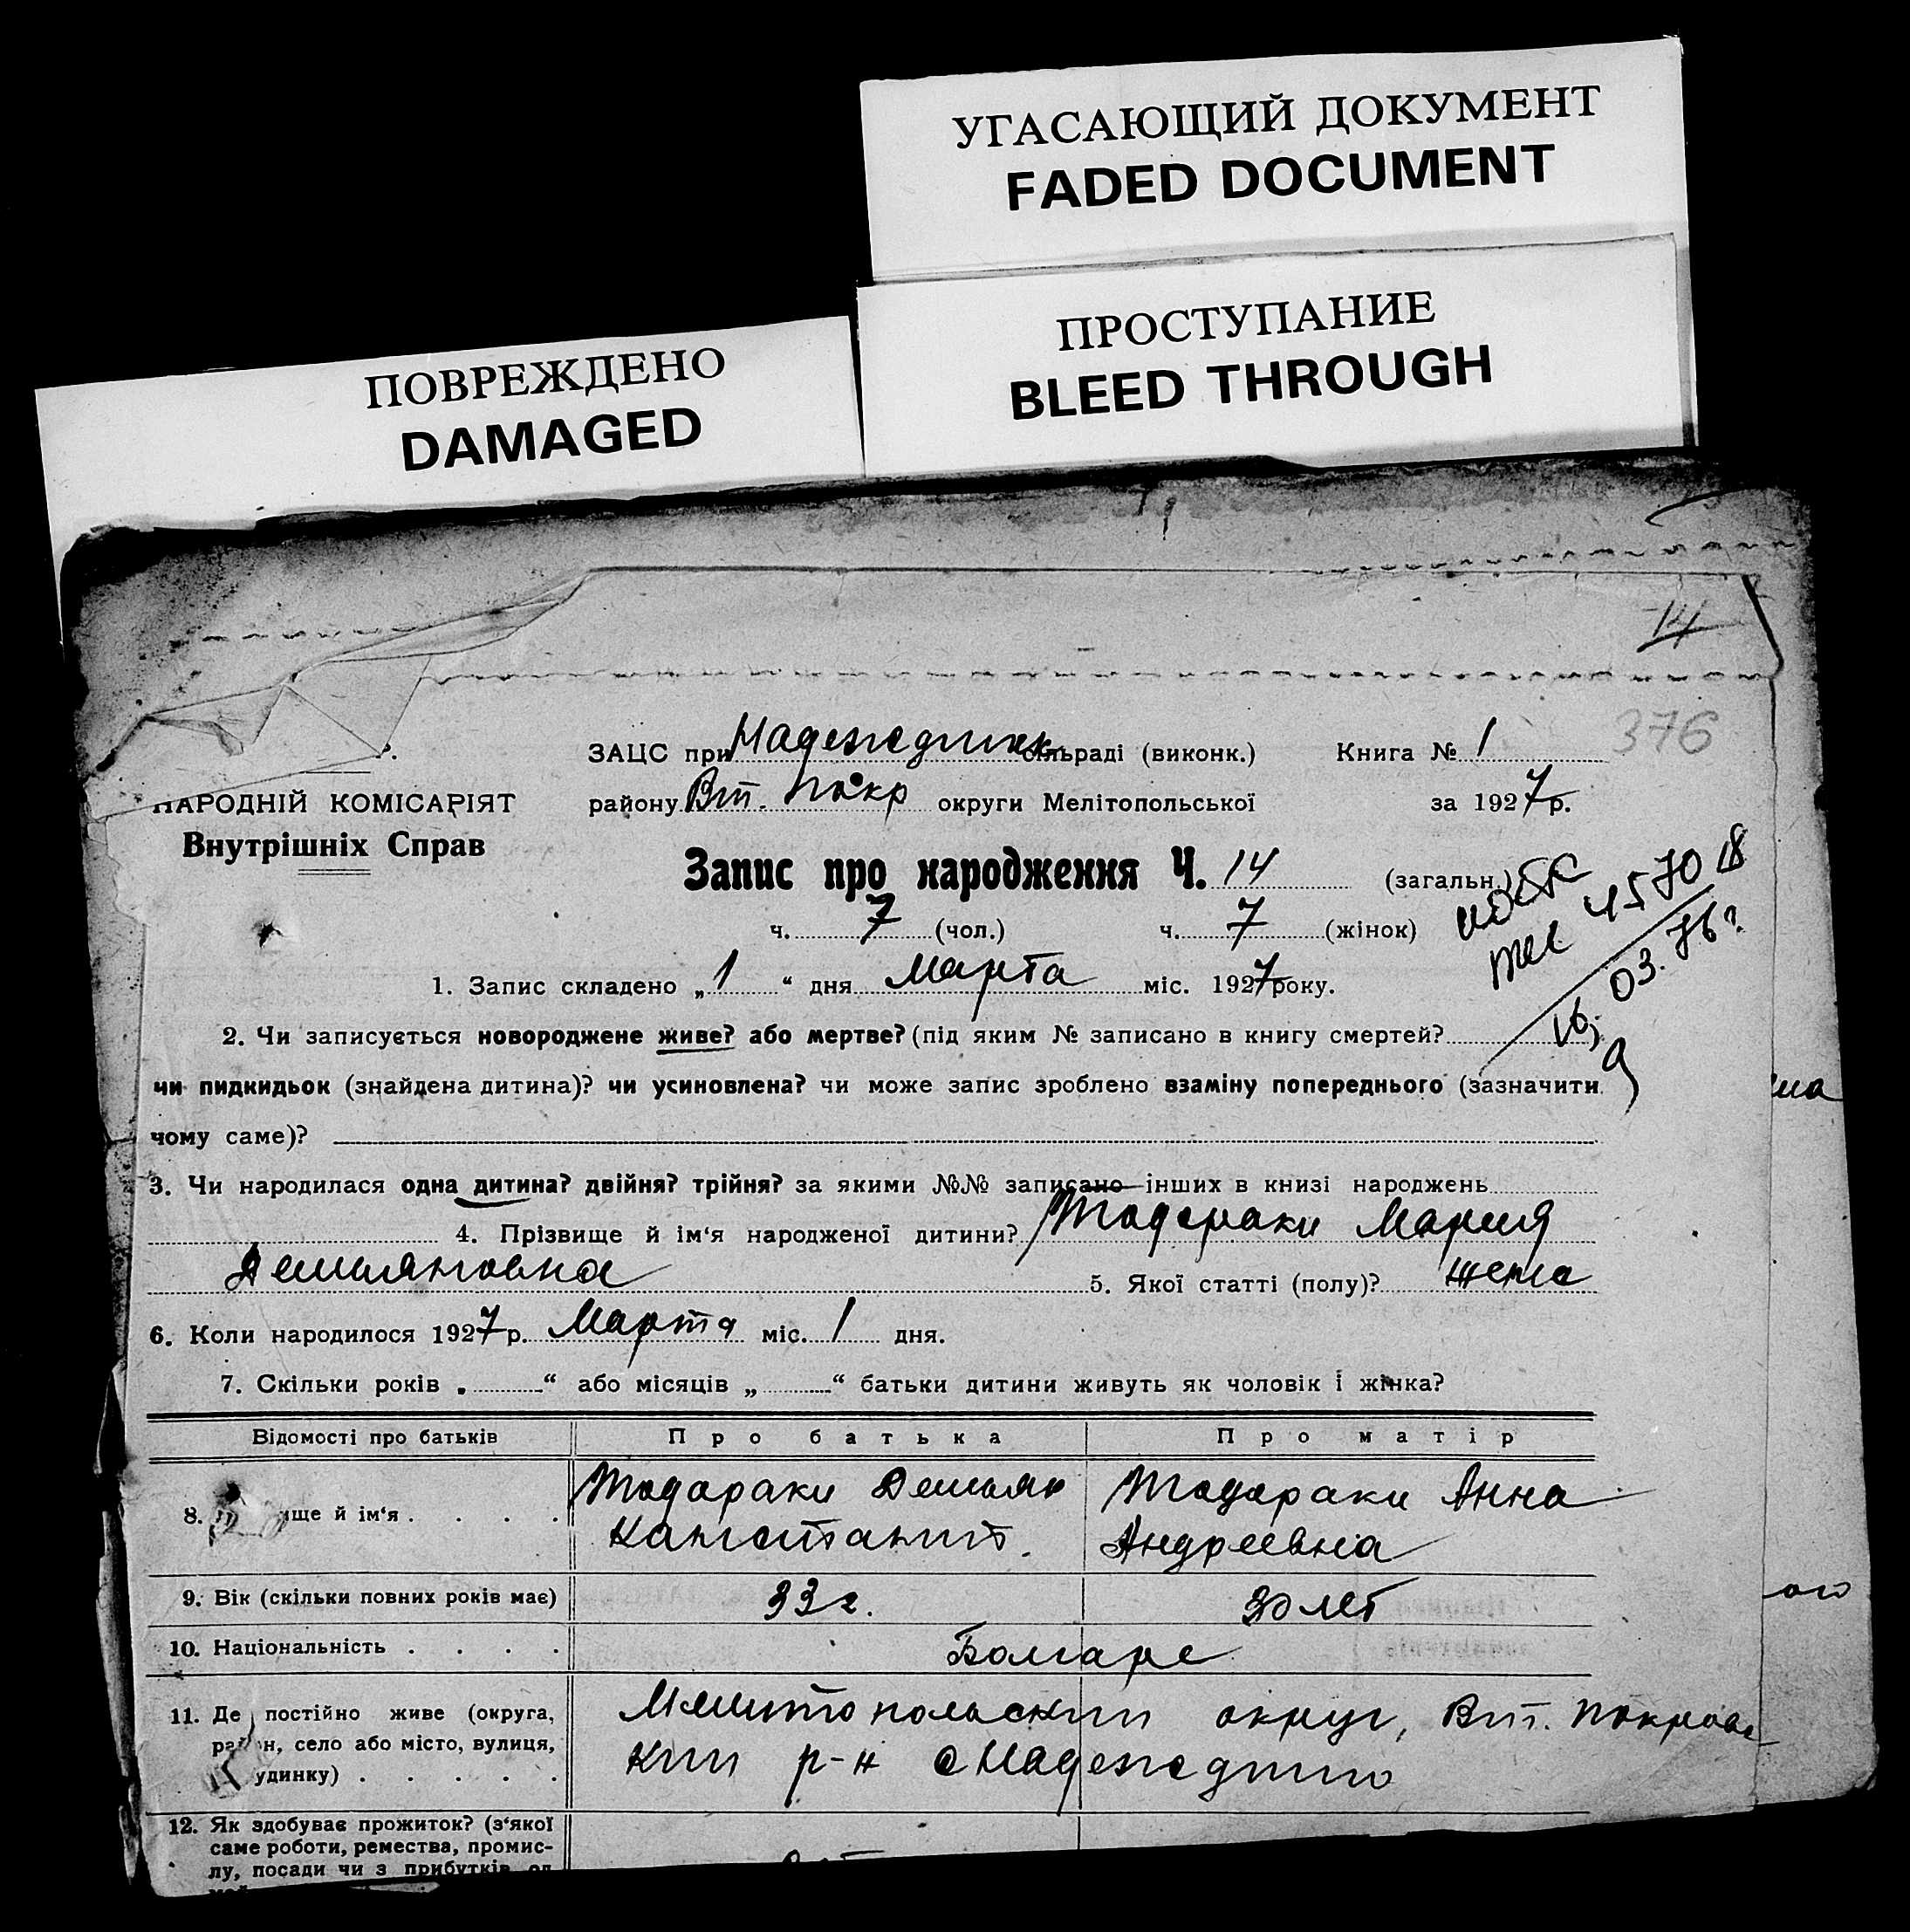 УГАСАЮЩИЙ ДОКУМЕНТ
FADED DOCUMENT
ПРОСТУПАНИЕ
BLEED THROUGH
ПОВРЕЖДЕНО
DAMAGED
14
376
ЗАЦС при Надеждинск сільраді (виконк.) Книга № 1
НАРОДНІЙ КОМІСАРІЯТ
району Вт. Покр округи Мелітопольської за 1927 р.
Внутрішніх Справ
Запис про народження Ч. 14 (загальн.)
ч. 7 (чол.) ч. 7 (жінок)
16. 03. 76 г.
1. Запис складено „1“ дня Марта міс. 1927 року.
2. Чи записується новороджене живе? або мертве? (під яким № записано в книгу смертей?
чи пидкидьок (знайдена дитина)? чи усиновлена? чи може запис зроблено взаміну попереднього (зазначити
чому саме)?
3. Чи народилася одна дитина? двійня? трійня? за якими №№ записано інших в книзі народжень
4. Прізвище й ім‘я народженої дитини? Тодораки Мария
Демьяновна 5. Якої статті (полу)? жена
6. Коли народилося 1927 р. Марта міс. 1 дня.
7. Скільки років „ “ або місяців „ “ батьки дитини живуть як чоловік і жінка?
Відомості про батьків Про батька Про матір
8. ище й ім‘я . . . . Тодораки Демьян Тодораки Анна
Констант. Андреевна
9. Вік (скільки повних років має) 33 г. 30 лет
10. Національність . . . . Болгаре
11. Де постійно живе (округа, район, село або місто, вулиця, удинку) . . . . . Мелитопольский округ, Вт. Покровс
кий р-н с Надеждино
12. Як здобуває прожиток? (з‘якої
саме роботи, ремества, промис-
лу, посади чи з прибутків од